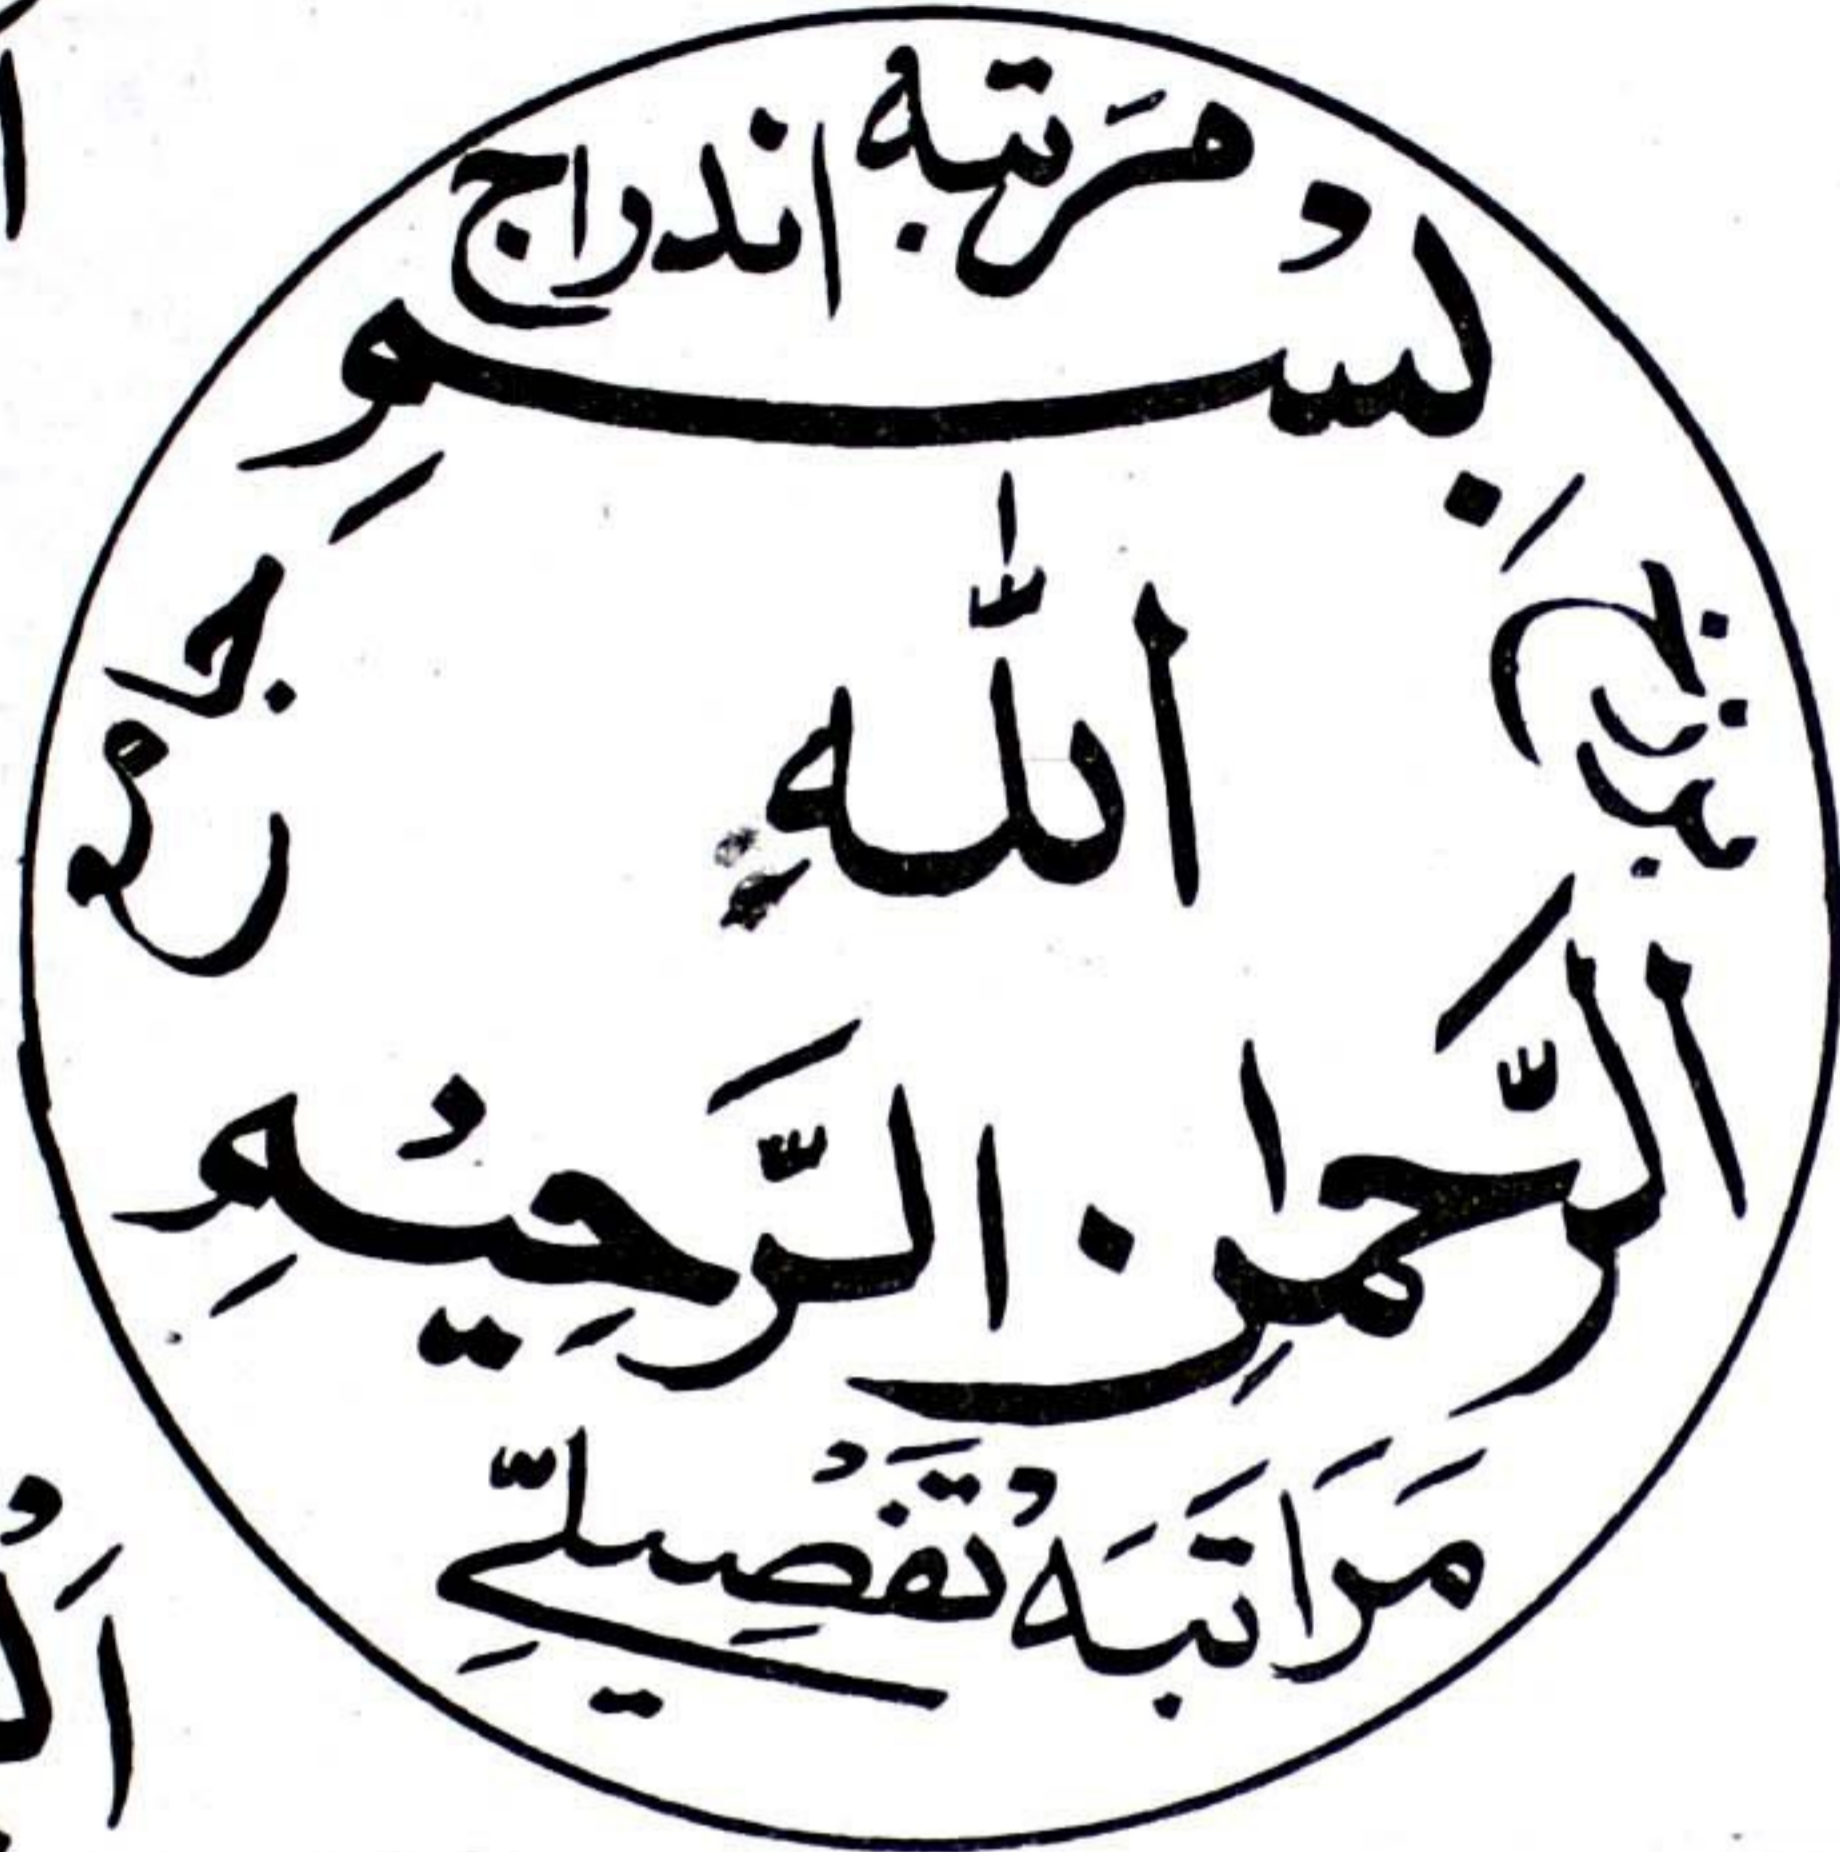 مَرتبه اندراج
بِسْمِ
اللّٰهِ
الرَّحمٰنِ الرَّحِيْمِ
مَرَاتبَهْ تَفْصِيلّے